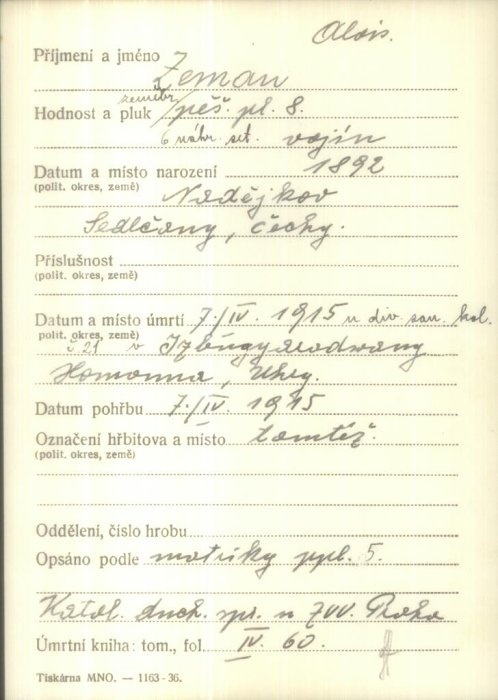 Alois.
Příjmení a jméno Zeman
zeměbr.
Hodnost a pluk pěš. pl. 8.
6 náhr. set. vojín
Datum a místo narození 1892
(polit. okres, země) Nadějkov
Sedlčany, Čechy.
Příslušnost
(polit. okres, země)
Datum a místo úmrtí 7./IV. 1915 u div. san. kol.
(polit. okres, země)
č 21 v
Homonna, Uhry.
Datum pohřbu 7./IV. 1915
Označení hřbitova a místo tamtéž.
(polit. okres, země)
Oddělení, číslo hrobu
Opsáno podle matriky ppl. 5.
Katol. duch. spr. u ZVV. Praha
Úmrtní kniha: tom., fol. IV. 60.
Tiskárna MNO. — 1163-36.